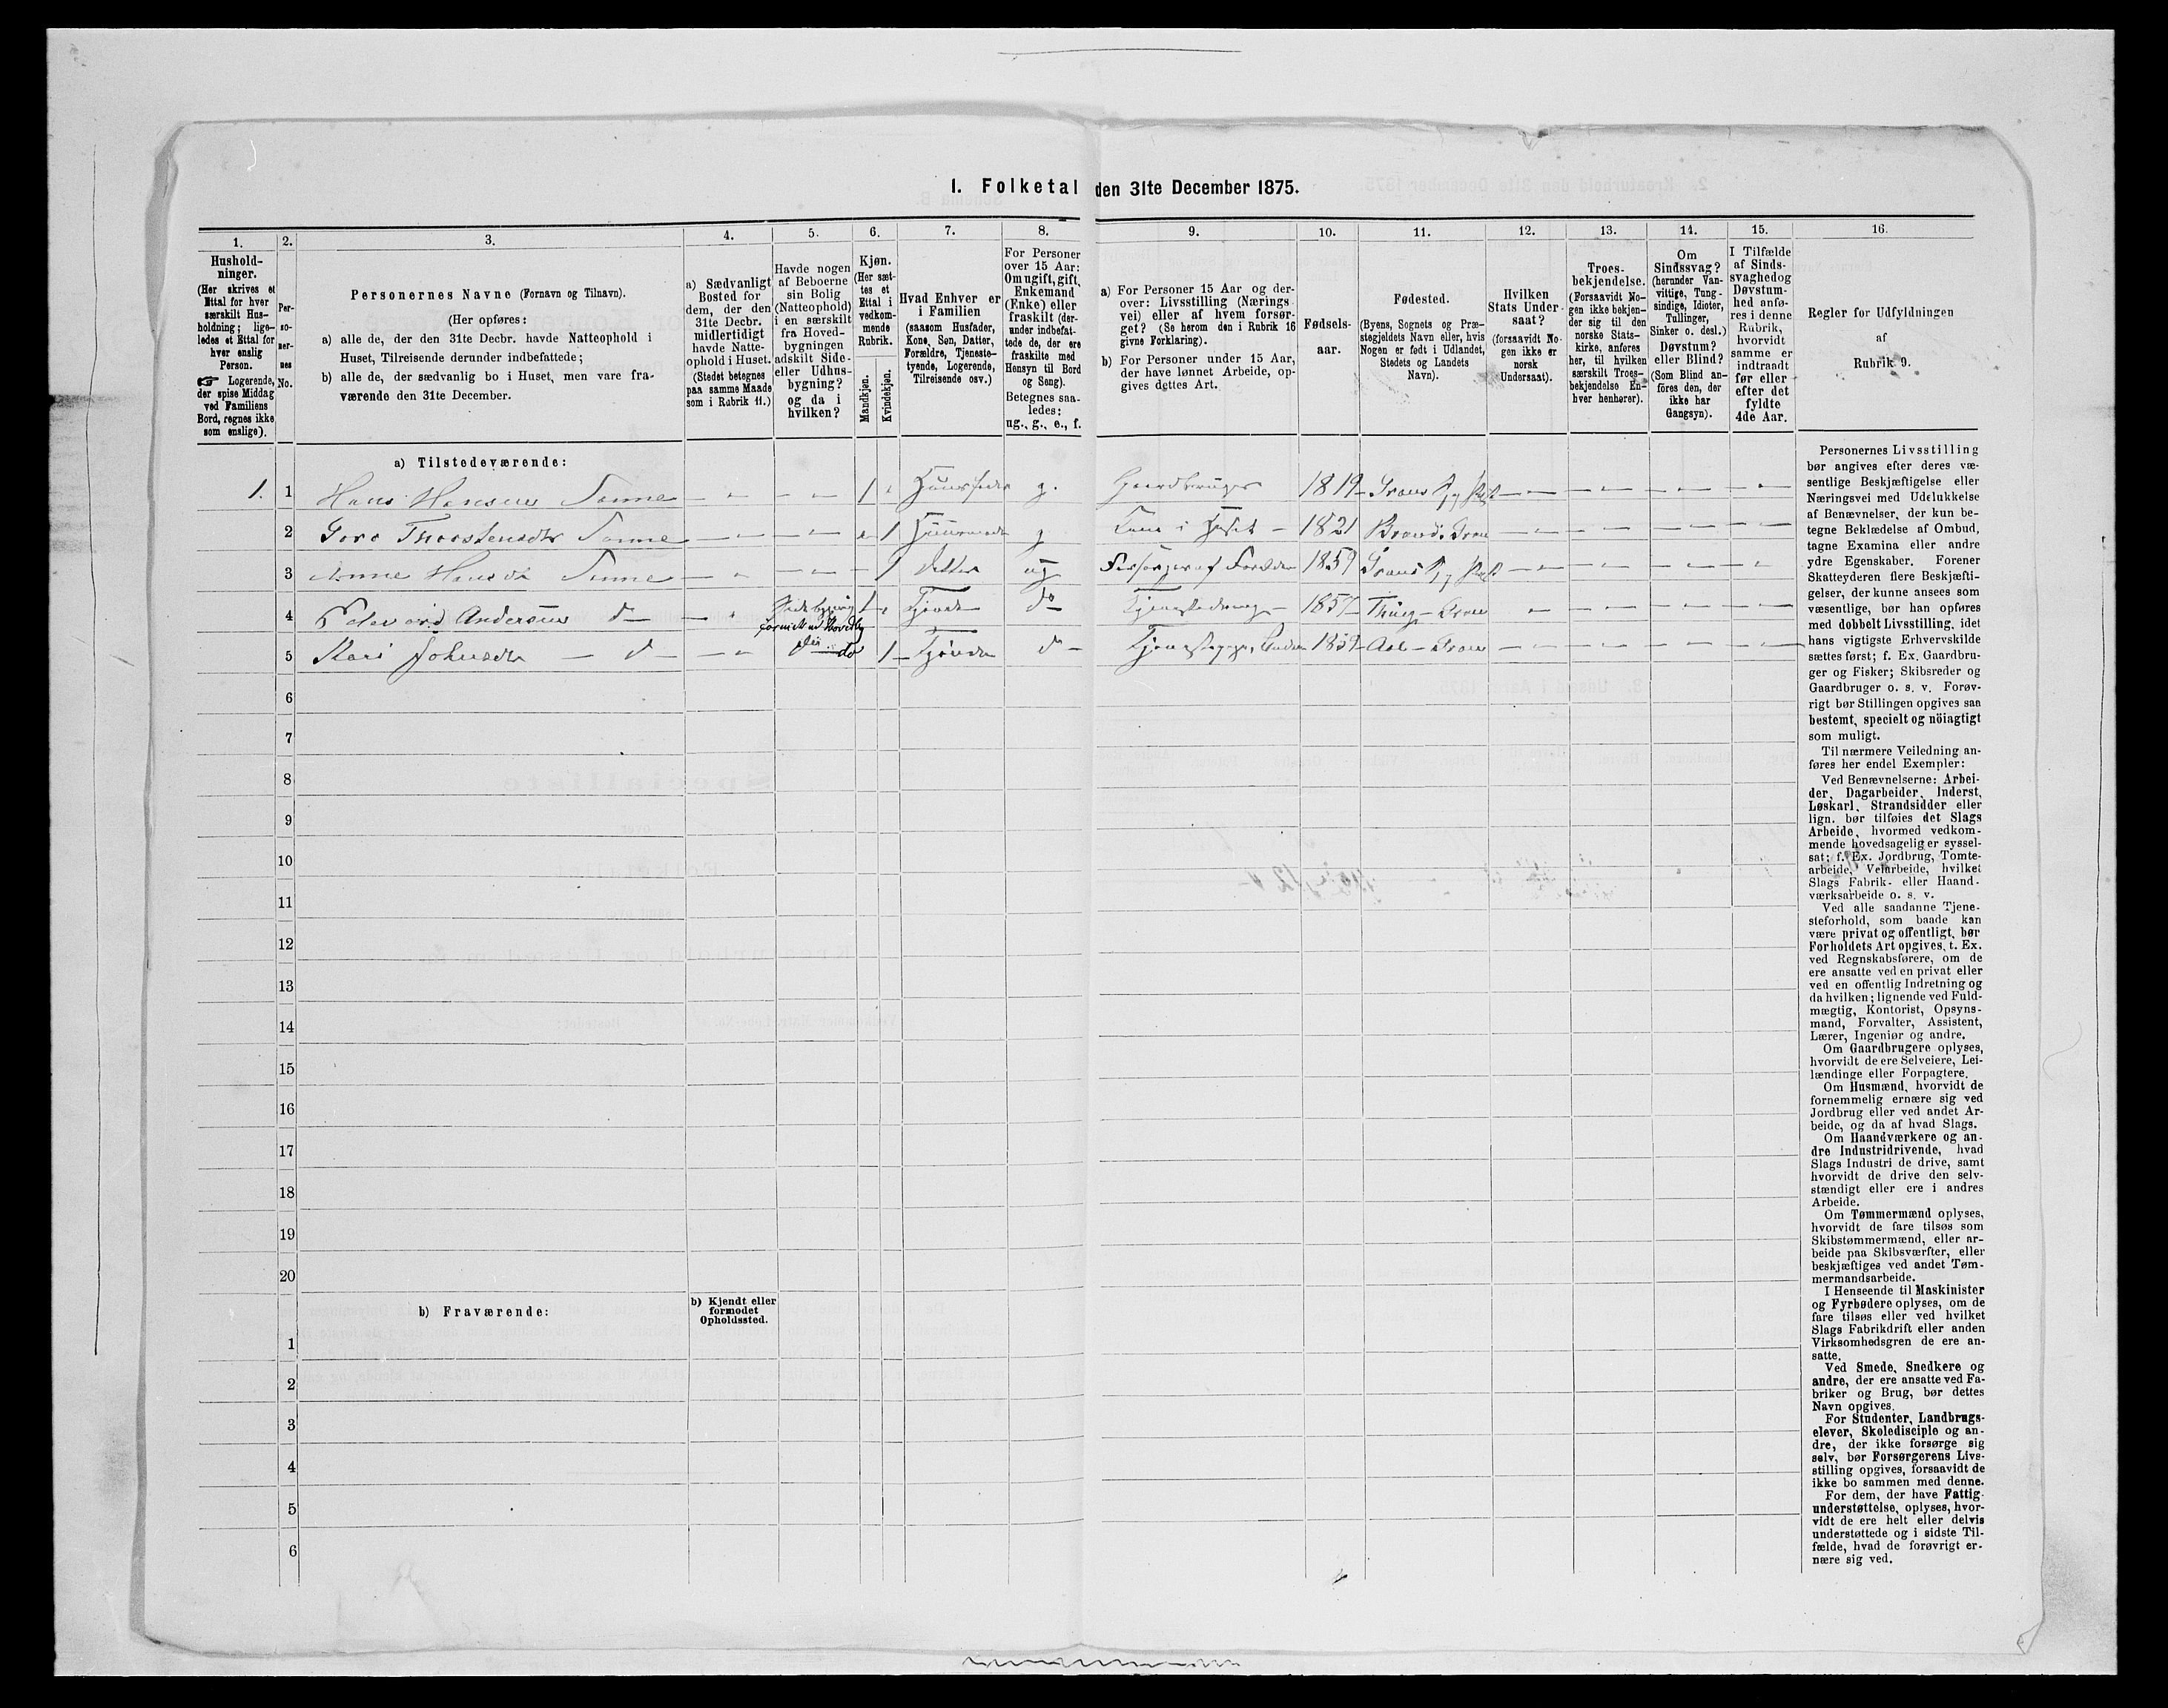 I. Folketal den 31te December 1875.
1.
Hushold-
ninger.
(Her skrives et
Ettal for hver
særskilt Hus-
holdning; lige-
ledes et Ettal for
hver enslig
Person.
☞ Logerende,
der spise Middag
ved Familiens
Bord, regnes ikke
som enslige).
2.
Per-
so-
ner-
nes
No.
3.
Personernes Navne (Fornavn og Tilnavn).
(Her opføres:
a) alle de, der den 31te Decbr. havde Natteophold i
Huset, Tilreisende derunder indbefattede;
b) alle de, der sædvanlig bo i Huset, men vare fra-
værende den 31te December.
4.
a) Sædvanligt
Bosted for
dem, der den
31te Decbr.
midlertidigt
havde Natte-
ophold i Huset.
(Stedet betegnes
paa samme Maade
som i Rubrik 11.)
5.
Havde nogen
af Beboerne
sin Bolig
(Natteophold)
i en særskilt
fra Hoved-
bygningen
adskilt Side-
eller Udhus-
bygning?
og da i
hvilken?
6.
Kjøn.
(Her sæt-
tes et
Ettal i
vedkom-
mende
Rubrik.
Mandkjøn.
Kvindekjøn.
7.
Hvad Enhver er
i Familien
(saasom Husfader,
Kone, Søn, Datter,
Forældre, Tjeneste-
tyende, Logerende,
Tilreisende osv.)
8.
For Personer
over 15 Aar:
Om ugift, gift,
Enkemand
(Enke) eller
fraskilt (der-
under indbefat-
tede de, der ere
fraskilte med
Hensyn til Bord
og Seng).
Betegnes saa-
ledes:
ug., g., e., f.
9.
a) For Personer 15 Aar og der-
over: Livsstilling (Nærings-
vei) eller af hvem forsør-
get? (Se herom den i Rubrik 16
givne Forklaring).
b) For Personer under 15 Aar,
der have lønnet Arbeide, op-
gives dettes Art.
10.
Fødsels-
aar.
11.
Fødested.
(Byens, Sognets og Præ-
stegjeldets Navn eller, hvis
Nogen er født i Udlandet,
Stedets og Landets
Navn).
12.
Hvilken
Stats Under-
saat?
(forsaavidt No-
gen ikke er
norsk
Undersaat).
13.
Troes-
bekjendelse.
(Forsaavidt No-
gen ikke bekjen-
der sig til den
norske Stats-
kirke, anføres
her, til hvilken
særskilt Troes-
bekjendelse En-
hver henhører).
14.
Om
Sindssvag?
(herunder Van-
vittige, Tung-
sindige, Idioter,
Tullinger,
Sinker o. desl.)
Døvstum?
eller Blind?
(Som Blind an-
føres den, der
ikke har
Gangsyn).
15.
I Tilfælde
af Sinds-
svaghed og
Døvstum-
hed anfø-
res i denne
Rubrik,
hvorvidt
samme er
indtraadt
før eller
efter det
fyldte
4de Aar.
16.
Regler for Udfyldningen
af
Rubrik 9.
a) Tilstedeværende:
1. 1 Hans Hansen Sanne — — 1 Huusfader g. Gaardbruger 1819 Grans
2 Goro Thorstensdtr Sanne — — 1 Huusmoder g Kone i Huset — 1821 Brandb Gran
3 Anne Hansdtr Sanne — — 1 Datter ug Forsørges af Foreldre 1859 Grans
4 Edevard Andersen d — Sidebygning 1 Tjener do Tjenestedreng — 1857 Thing — Gran
5 Kari Johnsdtr — d — — do 1 Tjener d — Tjenestepige 1859 Aal — Gran
6
7
8
9
10
11
12
13
14
15
16
17
18
19
20
b) Fraværende:
b) Kjendt eller
formodet
Opholdssted.
1
2
3
4
5
6
Personernes Livsstilling
bør angives efter deres væ-
sentlige Beskjæftigelse eller
Næringsvei med Udelukkelse
af Benævnelser, der kun be-
tegne Beklædelse af Ombud,
tagne Examina eller andre
ydre Egenskaber. Forener
Skatteyderen flere Beskjæfti-
gelser, der kunne ansees som
væsentlige, bør han opføres
med dobbelt Livsstilling, idet
hans vigtigste Erhvervskilde
sættes først; f. Ex. Gaardbru-
ger og Fisker; Skibsreder og
Gaardbruger o. s. v. Forøv-
rigt bør Stillingen opgives saa
bestemt, specielt og nöiagtigt
som muligt.
Til nærmere Veiledning an-
føres her endel Exempler:
Ved Benævnelserne: Arbei-
der, Dagarbeider, Inderst,
Løskarl, Strandsidder eller
lign. bør tilføies det Slags
Arbeide, hvormed vedkom-
mende hovedsagelig er syssel-
sat; f. Ex. Jordbrug, Tomte-
arbeide, Veiarbeide, hvilket
Slags Fabrik- eller Haand-
værksarbeide o. s. v.
Ved alle saadanne Tjene-
steforhold, som baade kan
være privat og offentligt, bør
Forholdets Art opgives, t. Ex.
ved Regnskabsførere, om de
ere ansatte ved en privat eller
ved en offentlig Indretning og
da hvilken; lignende ved Fuld-
mægtig, Kontorist, Opsyns-
mand, Forvalter, Assistent,
Lærer, Ingeniør og andre.
Om Gaardbrugere oplyses,
hvorvidt de ere Selveiere, Lei-
lændinge eller Forpagtere.
Om Husmænd, hvorvidt de
fornemmelig ernære sig ved
Jordbrug eller ved andet Ar-
beide, og da af hvad Slags.
Om Haandværkere og an-
dre Industridrivende, hvad
Slags Industri de drive, samt
hvorvidt de drive den selv-
stændigt eller ere i andres
Arbeide.
Om Tømmermænd oplyses,
hvorvidt de fare tilsøs som
Skibstømmermænd, eller ar-
beide paa Skibsværfter, eller
beskjæftiges ved andet Tøm-
mermandsarbeide.
I Henseende til Maskinister
og Fyrbødere oplyses, om de
fare tilsøs eller ved hvilket
Slags Fabrikdrift eller anden
Virksomhedsgren de ere an-
satte.
Ved Smede, Snedkere og
andre, der ere ansatte ved Fa-
briker og Brug, bør dettes
Navn opgives.
For Studenter, Landbrugs-
elever, Skoledisciple og an-
dre, der ikke forsørge sig
selv, bør Forsørgerens Livs-
stilling opgives, forsaavidt de
ikke bo sammen med denne.
For dem, der have Fattig-
understøttelse, oplyses, hvor-
vidt de ere helt eller delvis
understøttede og i sidste Til-
fælde, hvad de forøvrigt er-
nære sig ved.